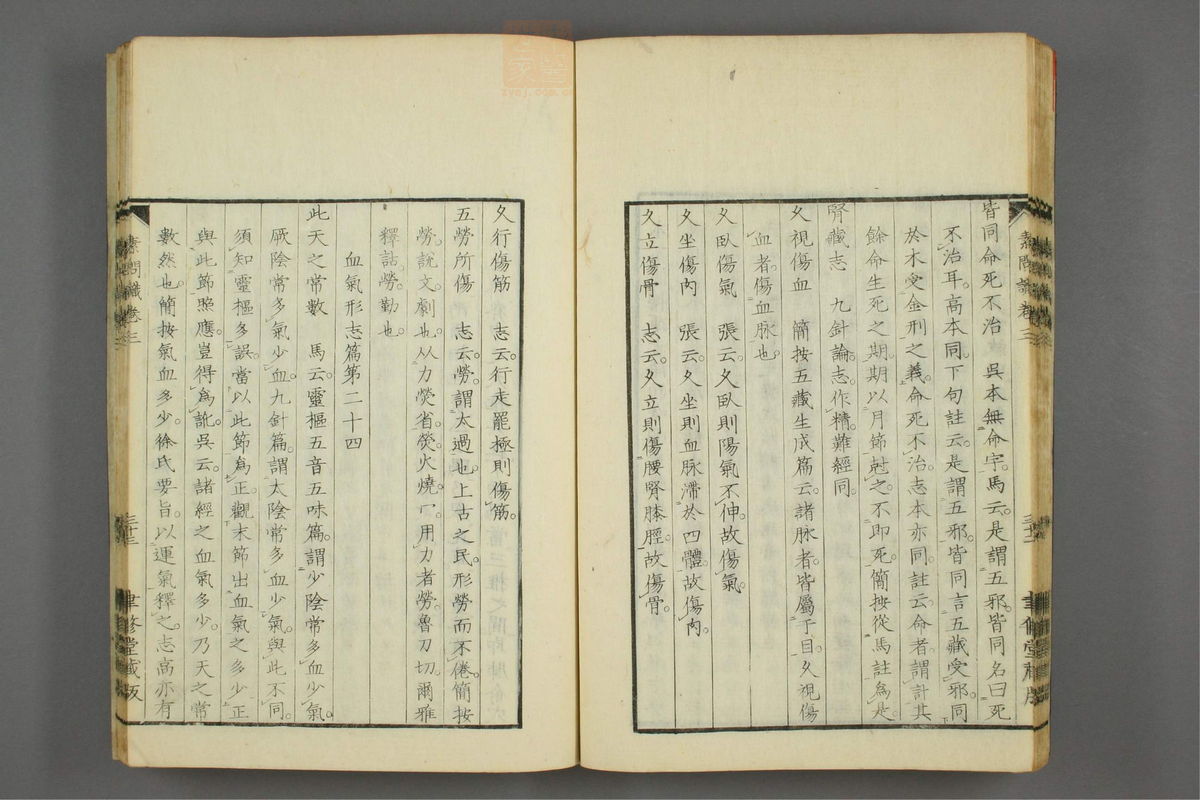 皆同命死不治　吳本無命字。馬云。是謂五邪。皆同名曰死
不治耳。高本同。下句註云。是謂五邪。皆同言五藏受邪。同
於木受金刑之義。命死不治。志本亦同。註云。命者。謂計其
餘命生死之期。期以月節尅之。不卽死。簡按從馬註爲是。
腎藏志　九針論。志。作精。難經同。
久視傷血　簡按五藏生成篇云。諸脉者。皆屬于目。久視傷
血者。傷血脉也。
久臥傷氣　張云。久臥則陽氣不伸。故傷氣。
久坐傷肉　張云。久坐則血脉滯於四體。故傷肉。
久立傷骨　志云。久立則傷腰腎膝脛。故傷骨。
久行傷筋　志云。行走罷極則傷筋。
五勞所傷　志云。勞。謂太過也。上古之民。形勞而不倦。簡按
勞。說文。劇也。从力熒省。熒火燒冖。用力者勞。魯刀切。爾雅
釋詁。勞。勤也。
血氣形志篇第二十四
此天之常數　馬云。靈樞五音五味篇。謂少陰常多血少氣。
厥陰常多氣少血。九針篇。謂太陰常多血少氣。與此不同。
須知靈樞多誤。當以此節爲正。觀末節出血氣之多少。正
與此節照應。豈得爲訛。吳云。諸經之血氣多少。乃天之常
數然也。簡按氣血多少。徐氏要旨。以運氣釋之。志高亦有
素問識卷三
三十三
聿修堂藏版